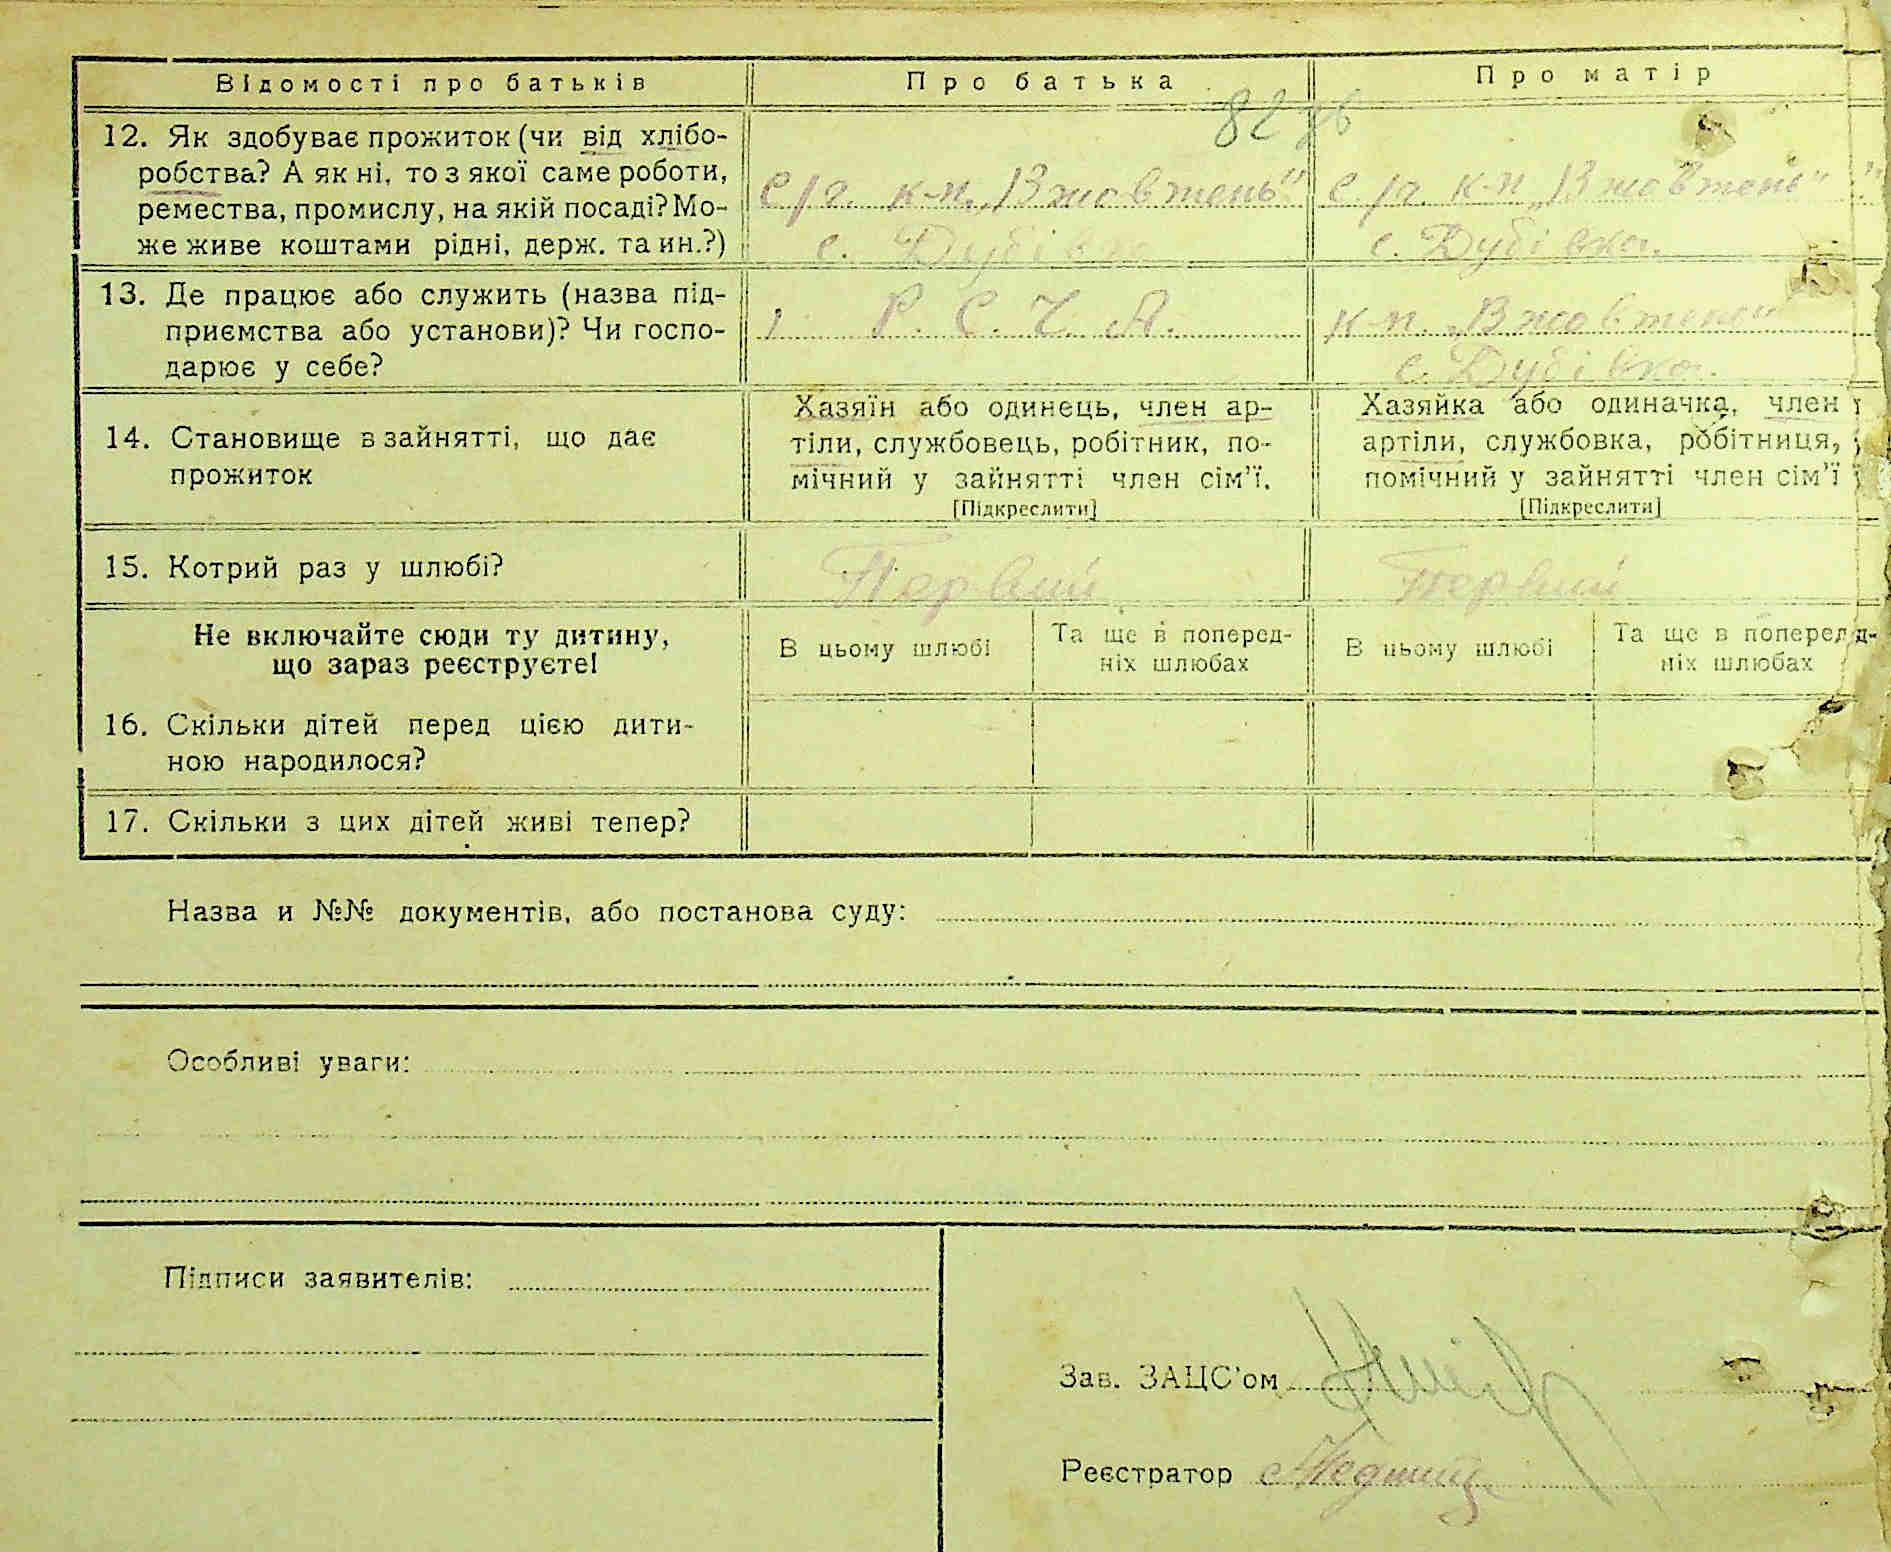 Відомості про батьків Про батька Про матір
82 зв
12. Як здобуває прожиток (чи від хлібо-
робства? А як ні, то з якої саме роботи,
ремества, промислу, на якій посаді? Мо-
же живе коштами рідні, держ. та ин.?)
с/г. к-п. „Жовтень" с/г. к-п „Жовтень"
с. Дубівка с. Дубівка.
13. Де працює або служить (назва під-
приємства або установи)? Чи госпо-
дарює у себе?
Р. С. Ч. А. к-п. „Жовтень"
с. Дубівка.
14. Становище в зайнятті, що дає
прожиток
Хазяїн або одинець, член ар-
тіли, службовець, робітник, по-
мічний у зайнятті член сім'ї.
[Підкреслити]
Хазяйка або одиначка, член
артіли, службовка, робітниця,
помічний у зайнятті член сім'ї
[Підкреслити]
15. Котрий раз у шлюбі? Первий Первий
Не включайте сюди ту дитину,
що зараз реєструєте!
В цьому шлюбі Та ще в поперед-
ніх шлюбах
В цьому шлюбі Та ще в поперед-
ніх шлюбах
16. Скільки дітей перед цією дити-
ною народилося?
17. Скільки з цих дітей живі тепер?
Назва и №№ документів, або постанова суду:
Особливі уваги:
Підписи заявителів:
Зав. ЗАЦС'ом
Реєстратор